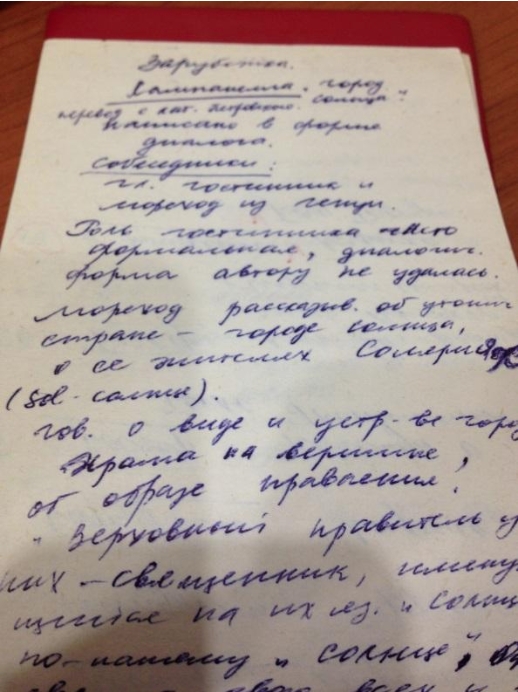 Зарубежка.
Кампанелла „город
перевод с лат. Петровского. солнца"
Написано в форме
диалога.
Собеседники:
гл. гостинник и
мореход из генуи.
Роль гостинника чисто
формальная, диалогич.
форма автору не удалась.
мореход рассказыв. об утопич
стране – городе солнца,
о её жителях Соляриях
(sol-солнце).
гов. о виде и устр-ве город
Храма на вершине,
об образе правления.
„Верховный правитель у
них – священник, имену
щийся на их яз. „Солнце
по-нашему „солнце",